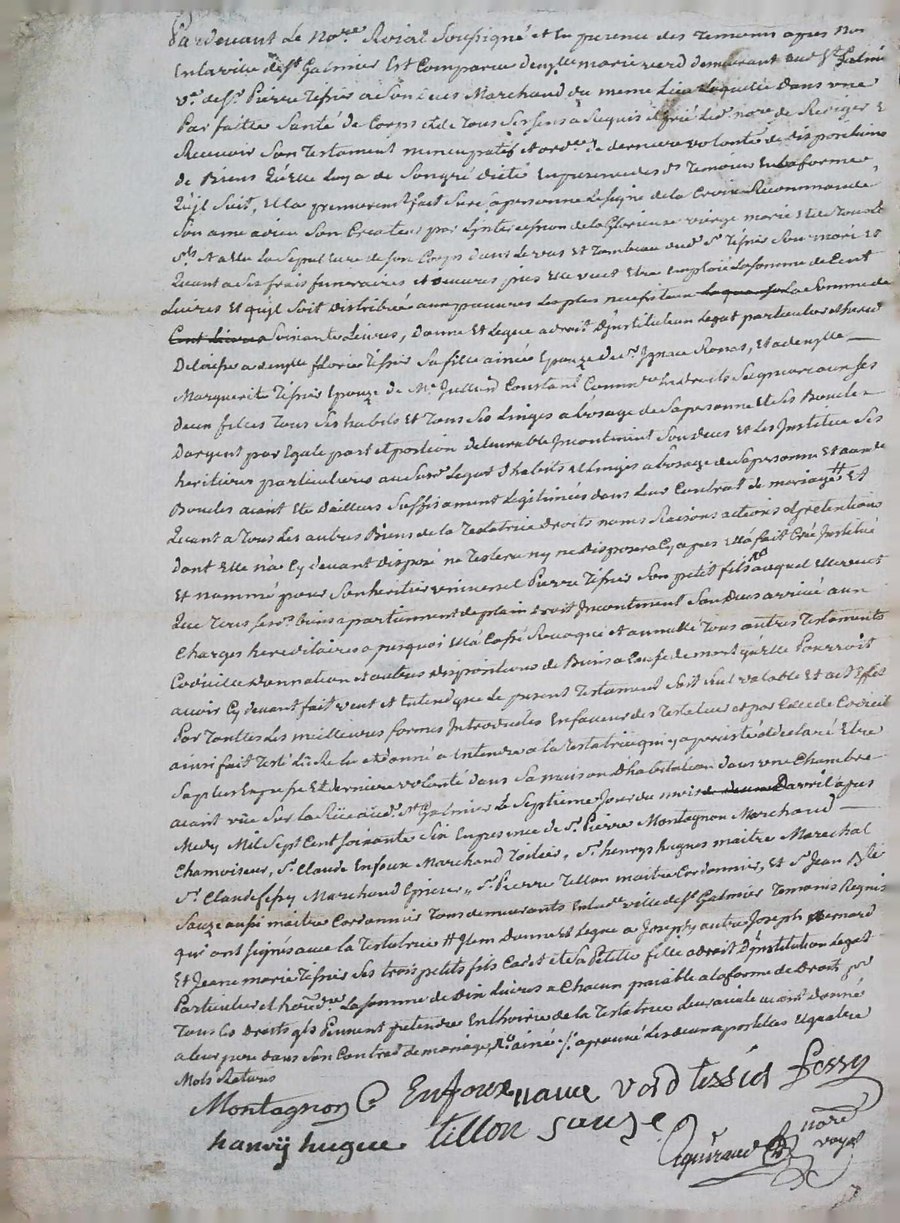 Pardevant Le no.re Roial Soussigné et En presence des Temoins apres no.
En la ville de S.t Galmier Est Comparue demy.lle marie verd demeurant aud. S.t Galmie
v.e de S.r Pierre Tissier a Son deces Marchand du meme Lieu Laquelle Dans une
Parfaitte Santé de Corps et de Tous Ses Sens a Requis et prié Led. no.re de Rediger E
Recevoir Son Testament nuncupatif et derniere volonté de disposition
de Biens qu'elle Luy a de Son gré dicté En presence des d. Temoins En la forme
qu'jl Suit, Ella premierem.t fait Sur Sa personne Le Signe de la Croix Recommandé
Son ame a dieu Son Createur par L'jntercession de la Glorieuse vierge marie et de Tous Le
S.ts Et a Elu La Sepulture de Son Corps Dans Le vas et Tombeau dud. S.r Tissier Son mari Et
Quant a Ses frais funeraires et oeuvres pies Elle veut Etre Emploié La Somme de Cent
Livres Et qu'jl Soit Distribuée aux pauvres La Somme de
Cent Livres Soixante Livres, Donne Et Legue a droit D'jnstitution Legat particulier et hered
a demy.lle florie Tissier Sa fille ainée Epouze de S.r Ignace Ronat, Et a demy.lle
Marguerite Tissier Epouze de M.e Jullien Constant Comm.re
deux filles Tous Ses habits Et Tous Ses Linges a L'usage de Sa personne Et Ses Boucles
D'argent par Egale part et portion delivrable Jncontinent Son deces Et Les Jnstitue Ses
heritieres particulieres aud. Legat D'habits et Linges a L'usage de Sa personne Et
Boucles aiant Eté D'ailleurs Suffisament Legitimées dans Leur Contrat de mariage Et
Quant a Tous Les autres Biens de la Testatrice Droits noms Raisons actions et pretentions
dont Elle n'a Cy devant disposé ne Testera ny ne Disposera Cy apres Ella fait Créé Jnstitué
Et nommé pour Son heritier universel Pierre Tissier Son petit fils auquel Elle veut
Que Tous Ses Biens apartiennent de plain Droit Jncontinent Son deces arrivé aux
Charges hereditaires a pusquoi Ella Cassé Revoqué et annullé Tous autres Testaments
Codicille Donnation et autres dispositions de Biens a Cause de mort qu'elle Pourroit
avoir Cy devant fait veut et Entend que Le present Testament Soit Seul valable Et ait Effet
Par Touttes Les meilleures formes Jntroduites En faveur des Testateur et par Celle de Codicil
ainsi fait Testé Lû Relu et donné a Entendre a la Testatrice qui y a persisté et declaré Etre
Sa plus Expresse Et derniere volonté dans Sa maison D'habitation dans une Chambre
aiant vüe Sur la Rüe aud. S.t Galmier Le Septieme Jour du mois D'avril apres
Midy Mil Sept Cent Soixante Six En presence de S.r Pierre Montagnon Marchand
Chamoiseur, S.r Claude Enfoux Marchand Toilier, S.r henrys hugues maitre Marechal
S.r Claude fessy Marchand Epicier, S.r Pierre Tillon maitre Cordonnier, Et S.r Jean B.te
Sauze aussi maitre Cordonnier Tous demeurants En lad. ville de S.t Galmier Temoins Requis
qui ont Signés avec la Testatrice # Jtem Donne et Legue a Joseph, autre Joseph, Bernard
Et Jeane marie Tissier Ses Trois petits fils Cadet et Sa Petitte fille a droit D'jnstitution Legat
Particulier et hered.re La Somme de Dix Livres a Chacun paiable a la forme de Droit, p.r
Tous Les Droits qls Peuvent pretendre En L'hoirie de la Testatrice
a Leur pere dans Son Contrat de mariage, ainé /. aprouvé Les deux apostilles Et quatre
Mots Raturés
Montagnon Enfoux marie verd tessié fessy
hanrÿ hugue tillon sauze
no.re
royal